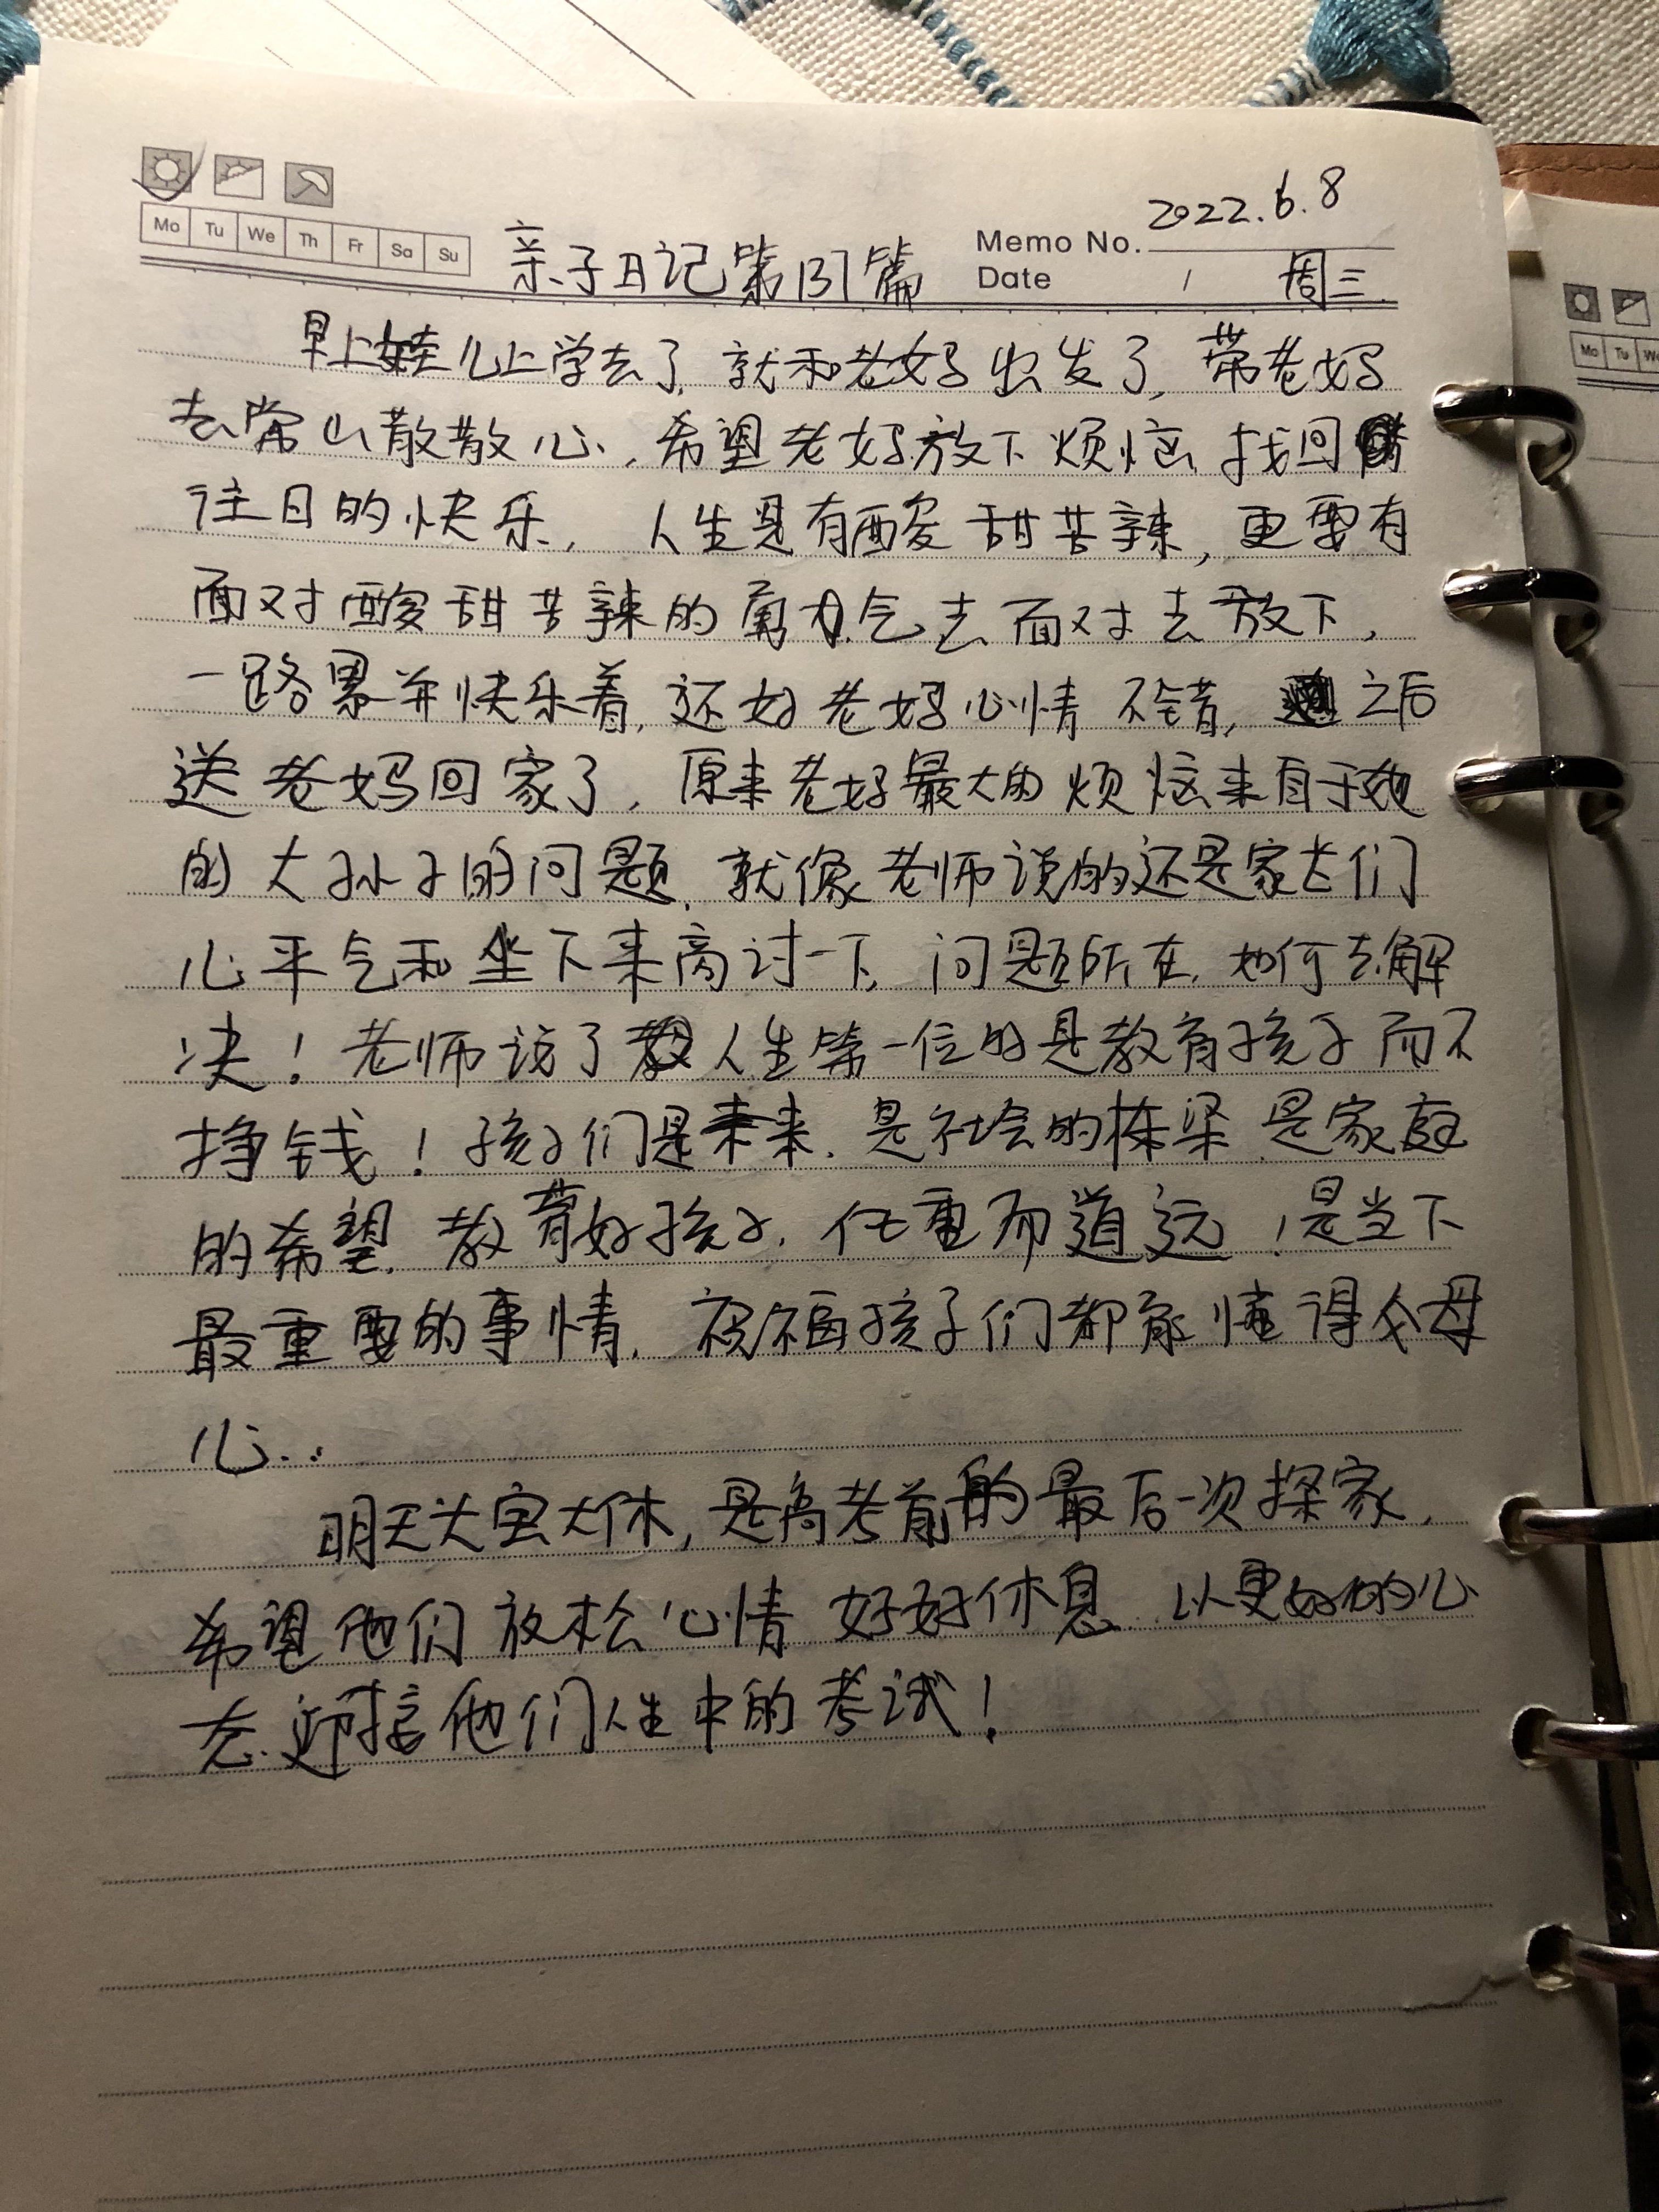 2022.6.8
Mo Tu We Th Fr Sa Su
亲子日记第131篇
Memo No.
Date / 周三
早上娃儿上学去了,就和老妈出发了,带老妈
去常山散散心,希望老妈放下烦恼,找回
往日的快乐。人生是有酸甜苦辣,更要有
面对酸甜苦辣的勇气去面对去放下,
一路累并快乐着,还好老妈心情不错,之后
送老妈回家了,原来老妈最大的烦恼来自于她
的大孙子的问题,就像老师说的还是家长们
心平气和坐下来商讨一下,问题所在,如何去解
决!老师说了人生第一位的是教育孩子而不
挣钱!孩子们是未来,是社会的栋梁,是家庭
的希望,教育好孩子,任重而道远!是当下
最重要的事情,祝福孩子们都能懂得父母
心..:
明天大宝大休,是高考前的最后一次探家,
希望他们放松心情 好好休息,以更好的心
态迎接他们人生中的考试!
Mo Tu We